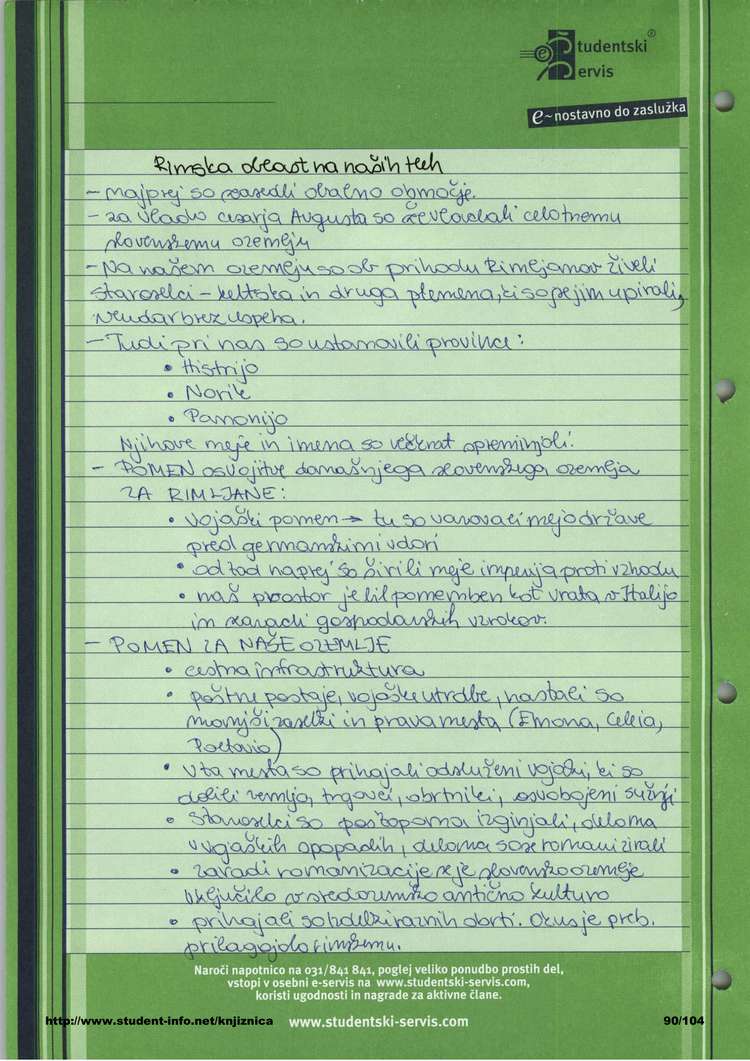 Študentski®
Servis
e~nostavno do zaslužka
Rimska oblast na naših tleh
- najprej so zasedli obalno območje.
- za vlado cesarja Augusta so že vladali celotnemu
slovenskemu ozemlju
- Na našem ozemlju so ob prihodu Rimljanov živeli
staroselci - keltska in druga plemena, ki so se jim upirali,
vendar brez uspeha.
- Tudi pri nas so ustanovili province:
• Histrijo
• Norik
• Panonijo
Njihove meje in imena so večkrat spreminjali.
- POMEN osvojitve današnjega slovenskega ozemlja
ZA RIMLJANE:
• vojaški pomen → tu so varovali mejo države
pred germanskimi vdori
• od tod naprej so širili meje imperija proti vzhodu
• naš prostor je bil pomemben kot vrata v Italijo
in zaradi gospodarskih vzrokov.
- POMEN ZA NAŠE OZEMLJE
• cestna infrastruktura
• poštne postaje, vojaške utrdbe, nastali so
manjši zaselki in prava mesta (Emona, Celeia,
Poetovio)
• v ta mesta so prihajali odsluženi vojaki, ki so
dobili zemljo, trgovci, obrtniki, osvobojeni sužnji
• staroselci so postopoma izginjali, deloma
v vojaških spopadih, deloma so se romanizirali
• zaradi romanizacije se je slovensko ozemlje
vključilo v sredozemsko antično kulturo
• prihajali so izdelki raznih obrti. Okus je preb.
prilagojalo rimskemu.
Naroči napotnico na 031/841 841, poglej veliko ponudbo prostih del,
vstopi v osebni e-servis na www.studentski-servis.com,
koristi ugodnosti in nagrade za aktivne člane.
http://www.student-info.net/knjiznica www.studentski-servis.com 90/104